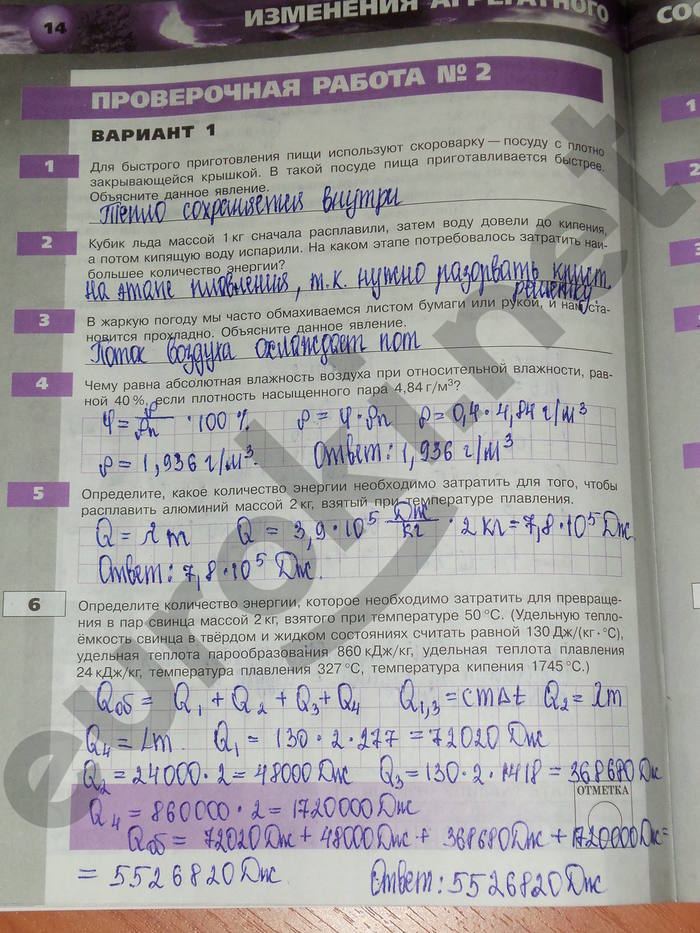 14
ИЗМЕНЕНИЯ АГРЕГАТНОГО
СОС
ПРОВЕРОЧНАЯ РАБОТА № 2
ВАРИАНТ 1
1
Для быстрого приготовления пищи используют скороварку — посуду с плотно
закрывающейся крышкой. В такой посуде пища приготавливается быстрее.
Объясните данное явление.
Тепло сохраняется внутри
2
Кубик льда массой 1 кг сначала расплавили, затем воду довели до кипения,
а потом кипящую воду испарили. На каком этапе потребовалось затратить наи-
большее количество энергии?
На этапе плавления, т.к. нужно разорвать крист.
решетку
3
В жаркую погоду мы часто обмахиваемся листом бумаги или рукой, и нам ста-
новится прохладно. Объясните данное явление.
Поток воздуха охлаждает пот
4
Чему равна абсолютная влажность воздуха при относительной влажности, рав-
ной 40 %, если плотность насыщенного пара 4,84 г/м³?
φ = ρ/ρп · 100 % ρ = φ · ρп ρ = 0,4 · 4,84 г/м³
ρ = 1,936 г/м³. Ответ: 1,936 г/м³
5
Определите, какое количество энергии необходимо затратить для того, чтобы
расплавить алюминий массой 2 кг, взятый при температуре плавления.
Q = λm Q = 3,9 · 10⁵ Дж/кг · 2 кг = 7,8 · 10⁵ Дж.
Ответ: 7,8 · 10⁵ Дж.
6
Определите количество энергии, которое необходимо затратить для превраще-
ния в пар свинца массой 2 кг, взятого при температуре 50 °С. (Удельную тепло-
ёмкость свинца в твёрдом и жидком состояниях считать равной 130 Дж/(кг · °С),
удельная теплота парообразования 860 кДж/кг, удельная теплота плавления
24 кДж/кг, температура плавления 327 °С, температура кипения 1745 °С.)
Qоб = Q₁ + Q₂ + Q₃ + Q₄ Q₁,₃ = cmΔt Q₂ = λm
Q₄ = Lm. Q₁ = 130 · 2 · 277 = 72020 Дж
Q₂ = 24000 · 2 = 48000 Дж Q₃ = 130 · 2 · 1418 = 368680 Дж
ОТМЕТКА
Q₄ = 860000 · 2 = 1720000 Дж
Qоб = 72020 Дж + 48000 Дж + 368680 Дж + 1720000 Дж =
= 5526820 Дж. Ответ: 5526820 Дж
euroki.net